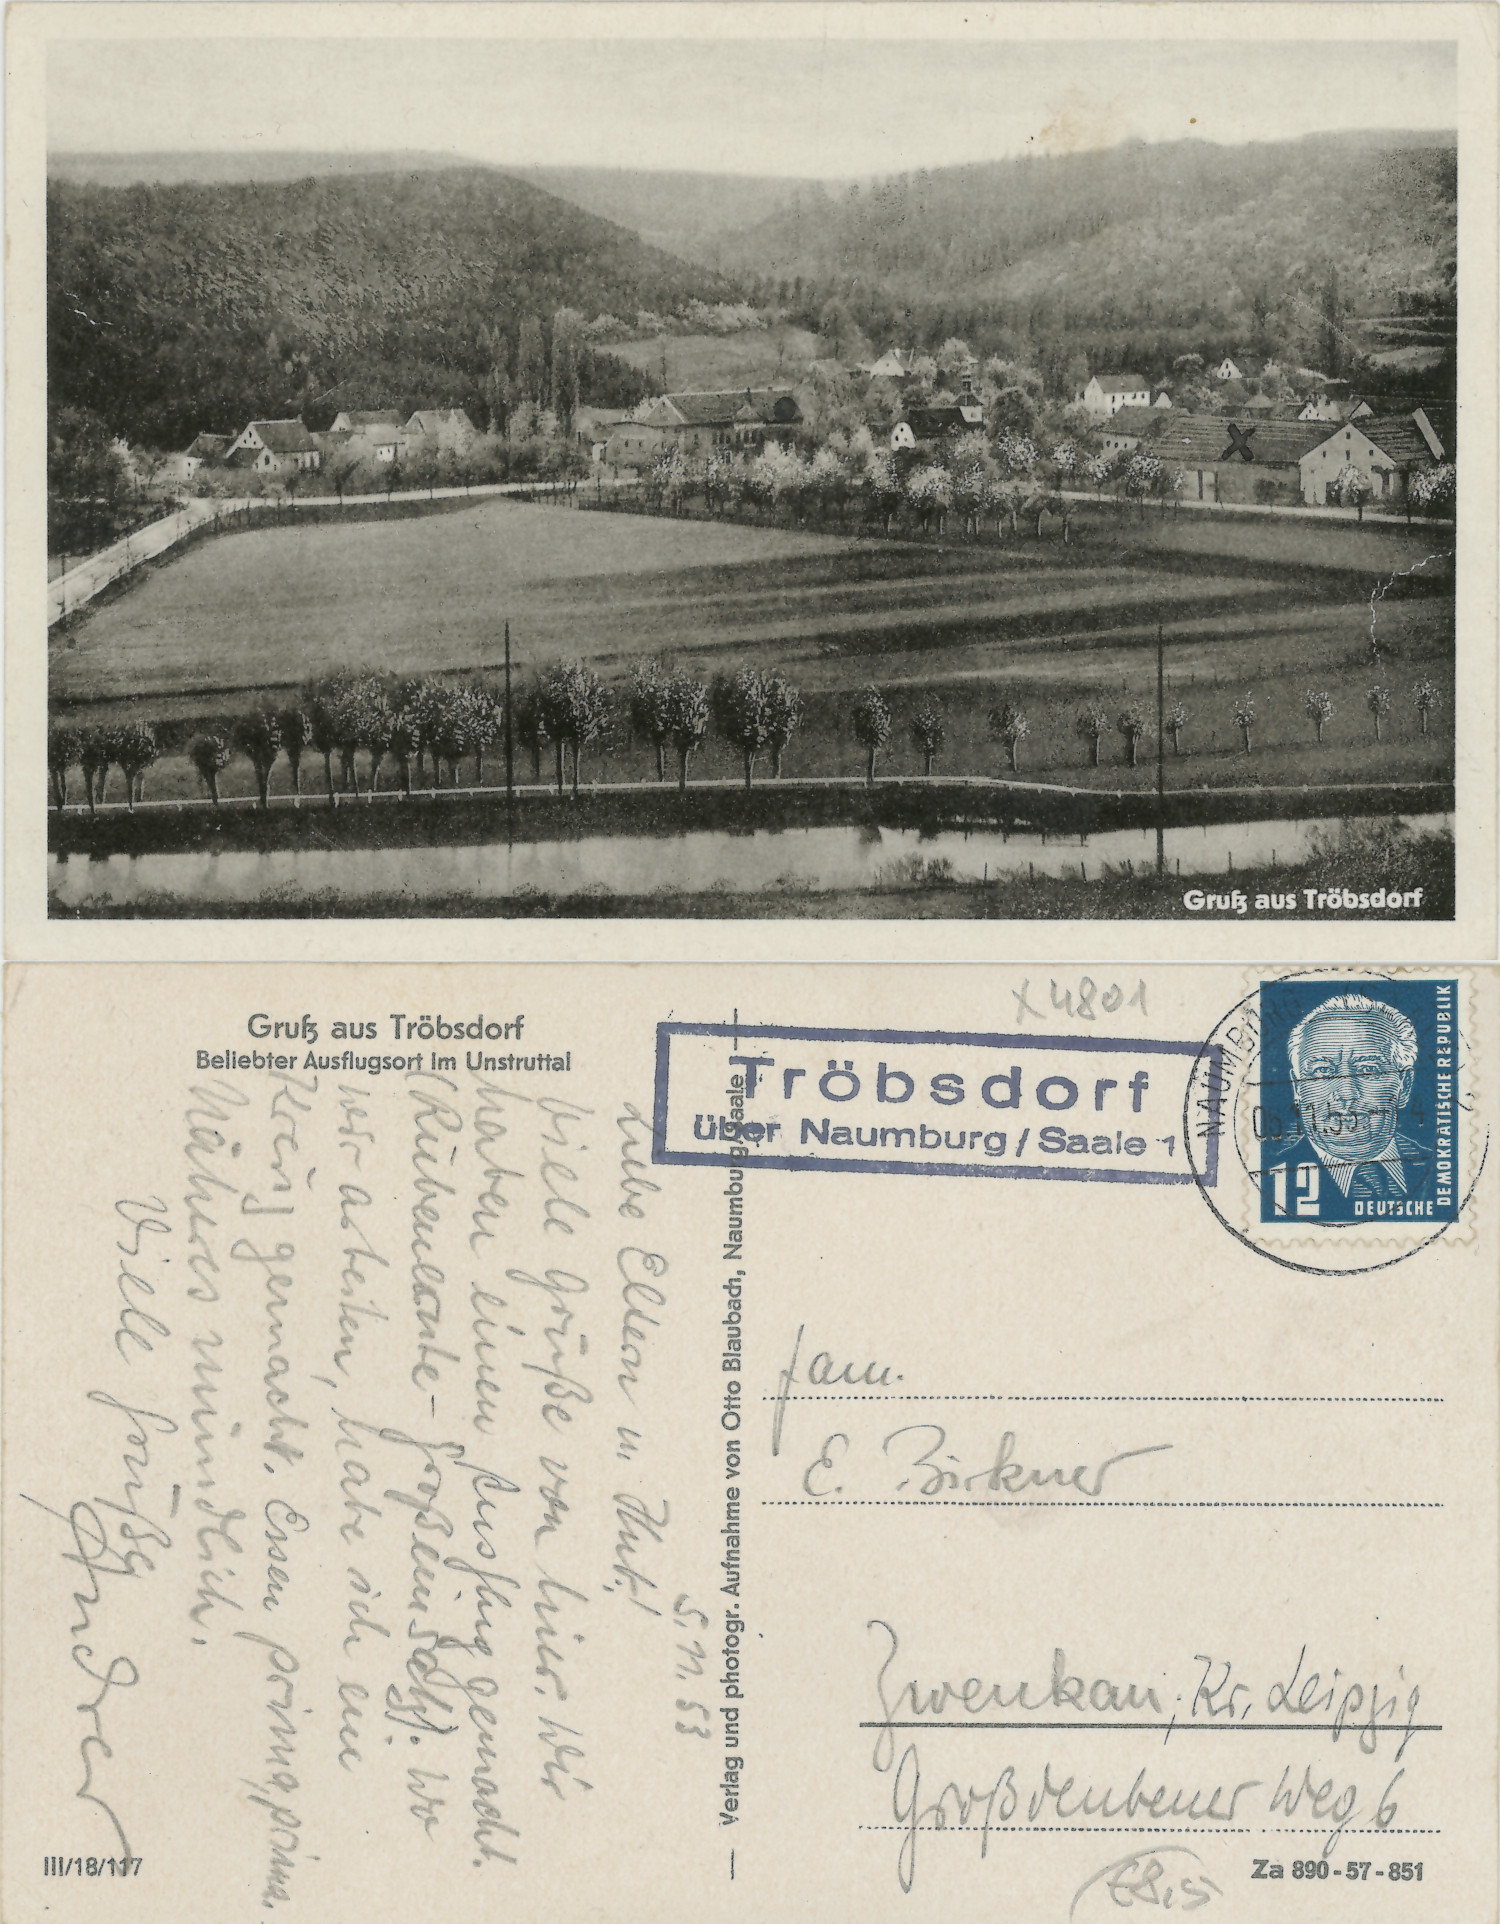 Gruß aus Tröbsdorf
Gruß aus Tröbsdorf
Beliebter Ausflugsort im Unstruttal
x 4801
Tröbsdorf
über Naumburg/Saale 1
NAUMBURG
12
DEUTSCHE
DEMOKRATISCHE REPUBLIK
5.11.53
Liebe Eltern u.
viele Grüße von hier. Wir
haben einen Ausflug gemacht.
(Rübenernte-
wir arbeiten, habe ich eine
gemacht. Essen prima, prima.
Näheres mündlich.
Viele Grüße
Verlag und photogr. Aufnahme von Otto Blaubach, Naumburg/Saale
Fam.
E. Birkner
Zwenkau, Kr. Leipzig
Großdeubener Weg 6
III/18/117
Za 890-57-851